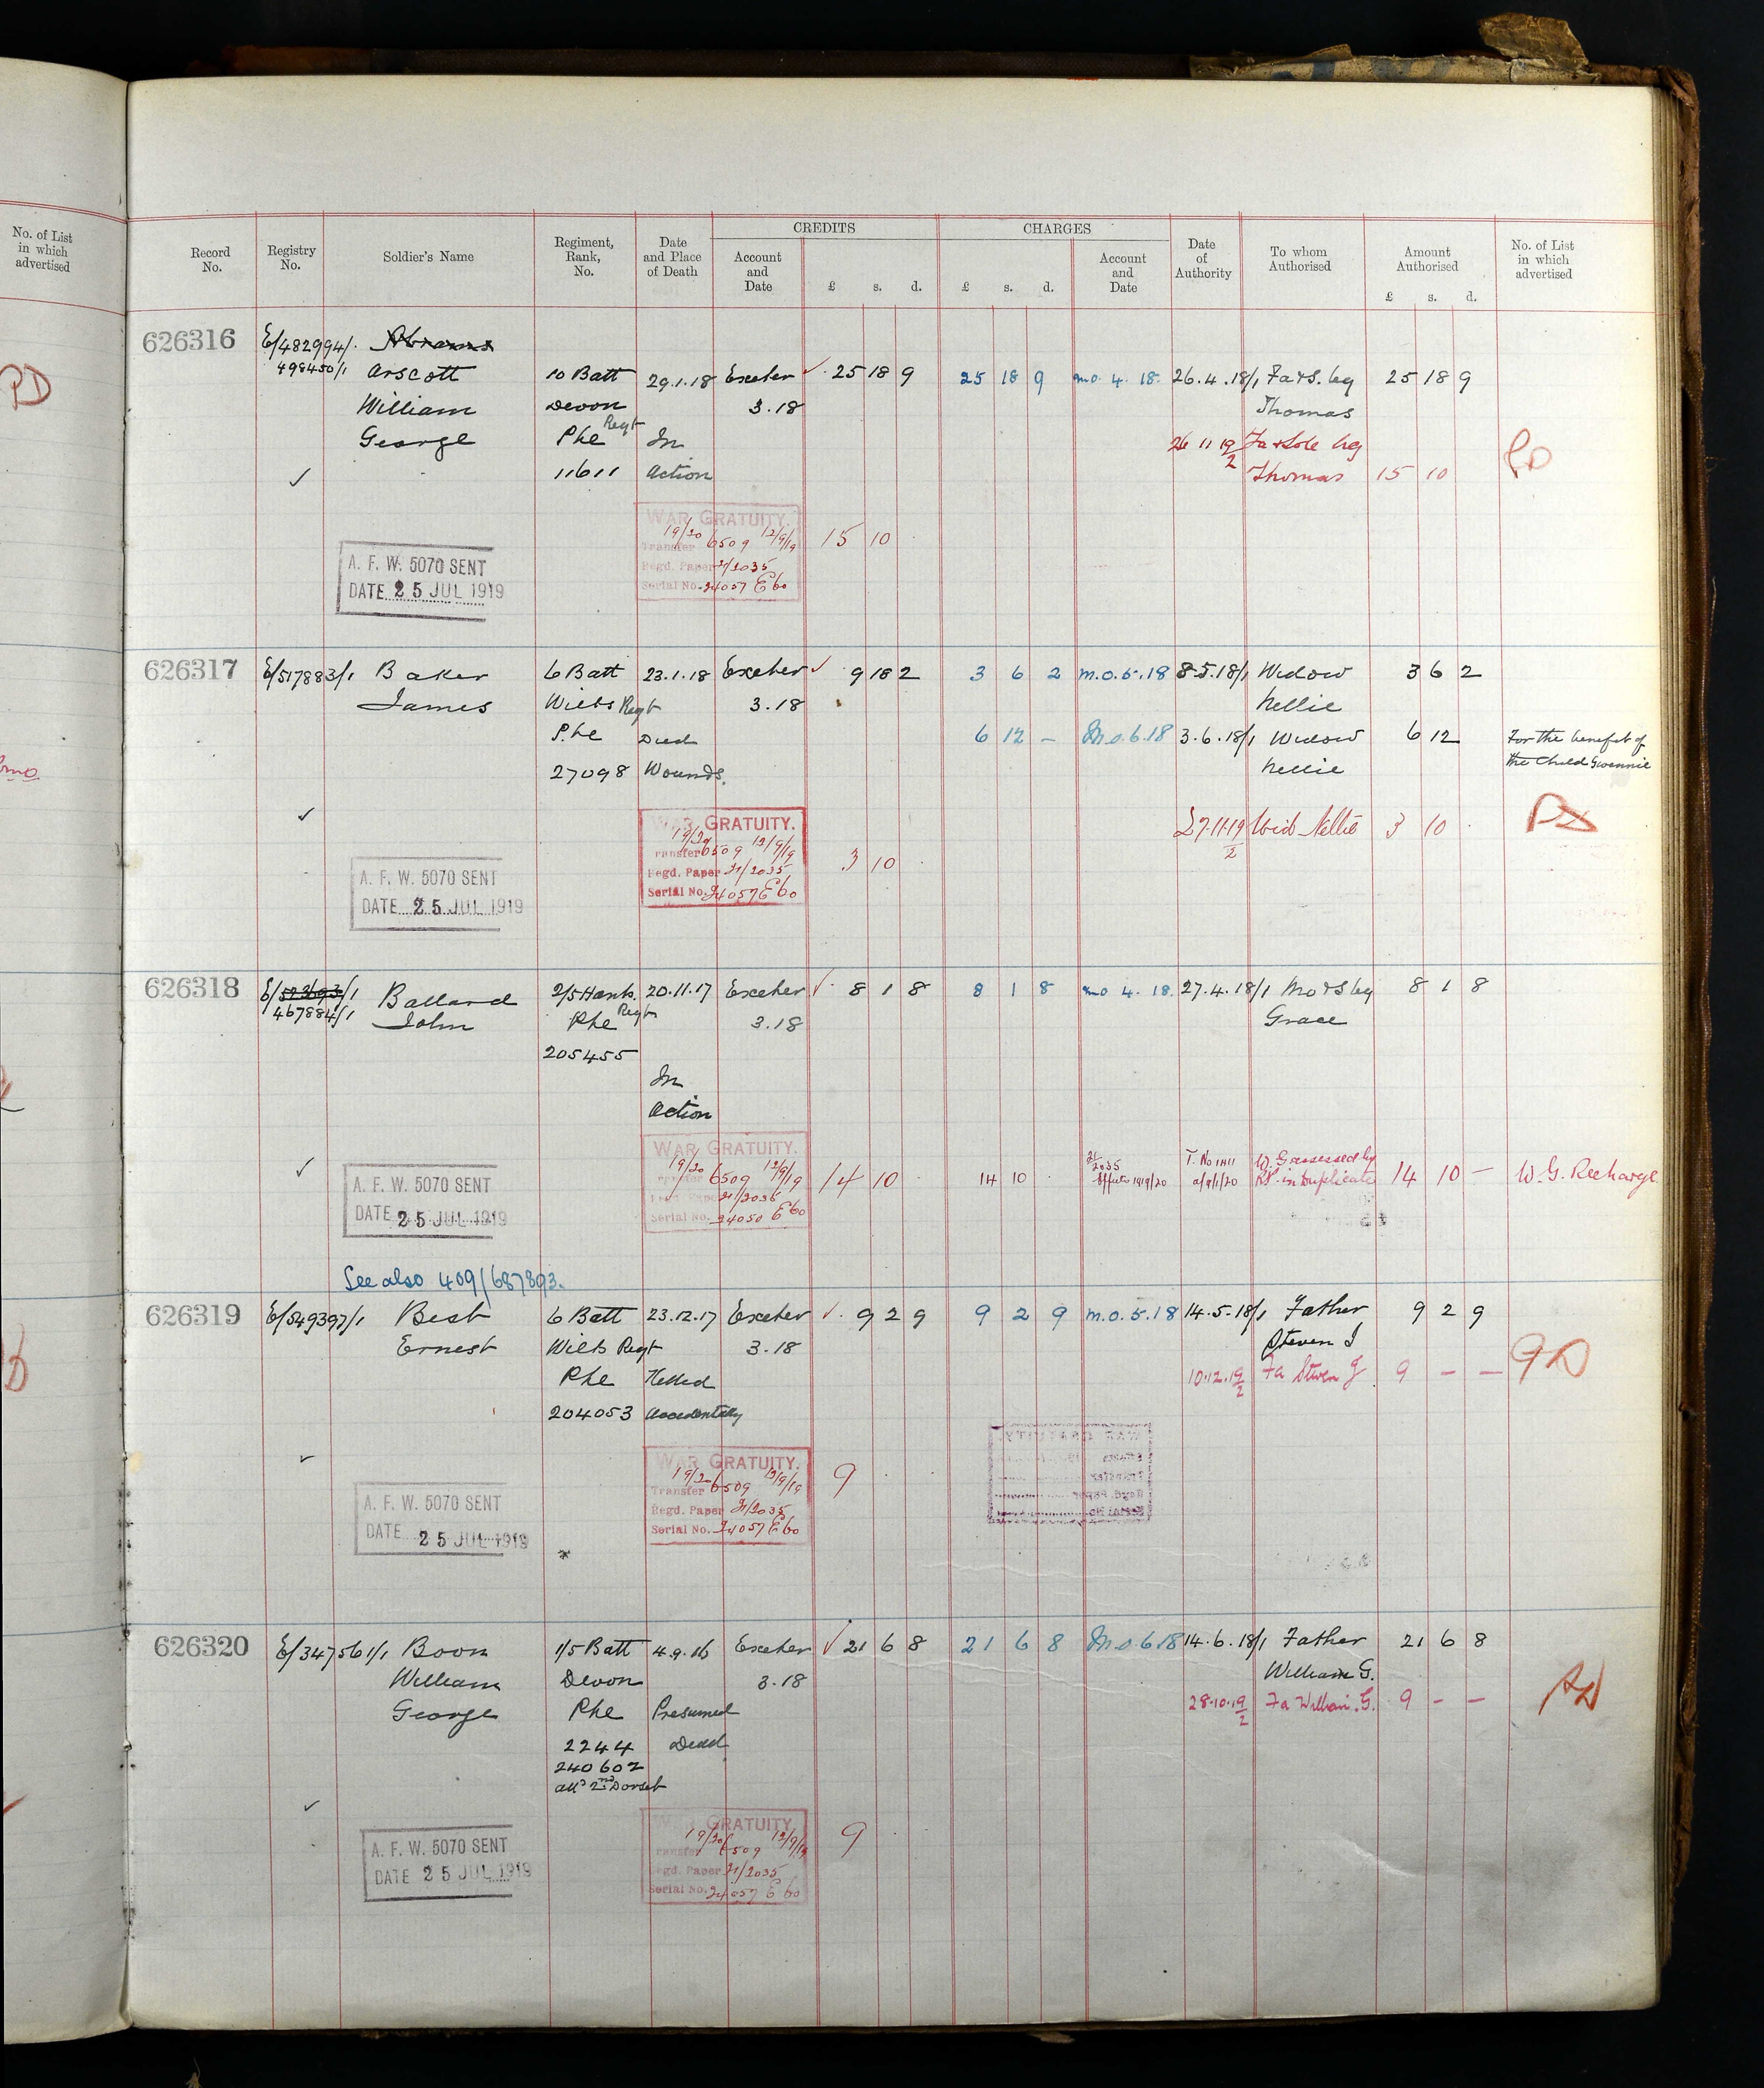 No. of List
in which
advertised
PD
Record
No.
Registry
No.
Soldier's Name
Regiment,
Rank,
No.
Date
and Place
of Death
CREDITS
Account
and
Date
£ s. d.
CHARGES
£ s. d.
Account
and
Date
Date
of
Authority
To whom
Authorised
Amount
Authorised
£ s. d.
No. of List
in which
advertised
626316 E/482994/1
498450/1 Arscott 10 Batt 29.1.18 Exeter ✓ 25 18 9 25 18 9 m.o. 4. 18. 26.4.18/1 Fa & S. leg 25 18 9
William Devon 3.18 Thomas
George Regt Pte In 26 11 19/2 Fa & Sole leg
✓ 11611 Action Thomas 15 10
WAR GRATUITY.
19/20 6509 12/9/19 15 10
Transfer
Regd. Paper 21/2035
Serial No. 24057 E60
A. F. W. 5070 SENT
DATE 25 JUL 1919
626317 E/517883/1 Baker 6 Batt 23.1.18 Exeter ✓ 9 18 2 3 6 2 m.o.5.18 8.5.18/1 Widow 3 6 2
James Wilts Regt 3.18 Nellie
Pte Died 6 12 – M.o.6.18 3.6.18/1 Widow 6 12 For the benefit of
27098 Wounds. Nellie the Child Gwennie
✓ 27.11.19/2 Wid Nellie 3 10
WAR GRATUITY.
19/20 6509 12/9/19
Transfer 3 10
Regd. Paper 21/2035
Serial No. 24057 E60
A. F. W. 5070 SENT
DATE 25 JUL 1919
626318 E/523693/1 Ballard 2/5 Hants. 20.11.17 Exeter ✓ 8 1 8 8 1 8 mo 4. 18. 27.4.18/1 Mo & S leg 8 1 8
467884/1 John Regt Pte 3.18 Grace
205455
In
Action
WAR GRATUITY.
✓ 19/20 6509 12/9/19 14 10 14 10 21/2035 T. No 1411 W.G assessed by
RP. in Duplicate 14 10 – W.G. Recharge
21/2035
Serial No. 24050 E60
A. F. W. 5070 SENT
DATE 25 JUL 1919
See also 409/687893.
626319 E/549397/1 Best 6 Batt 23.12.17 Exeter ✓ 9 2 9 9 2 9 m.o.5.18 14.5.18/1 Father 9 2 9
Ernest Wilts Regt 3.18 Steven J
Pte Killed 10.12.19/2 Fa Steven J 9 – –
204053 accidentally
✓ WAR GRATUITY.
19/20 6509 12/9/19 9
Transfer
Regd. Paper 21/2035
Serial No. 24057 E60
A. F. W. 5070 SENT
DATE 25 JUL 1919
626320 E/347561/1 Boon 1/5 Batt 4.9.16 Exeter ✓ 21 6 8 21 6 8 M.o 6.18 14.6.18/1 Father 21 6 8
William Devon 3.18 William G.
George Pte Presumed 28.10.19/2 Fa William. G. 9 – –
2244 Dead
240602
attd 2nd Dorset
✓ WAR GRATUITY.
19/20 6509 12/9/19 9
Transfer
Regd. Paper 21/2035
Serial No. 24057 E60
A. F. W. 5070 SENT
DATE 25 JUL 1919